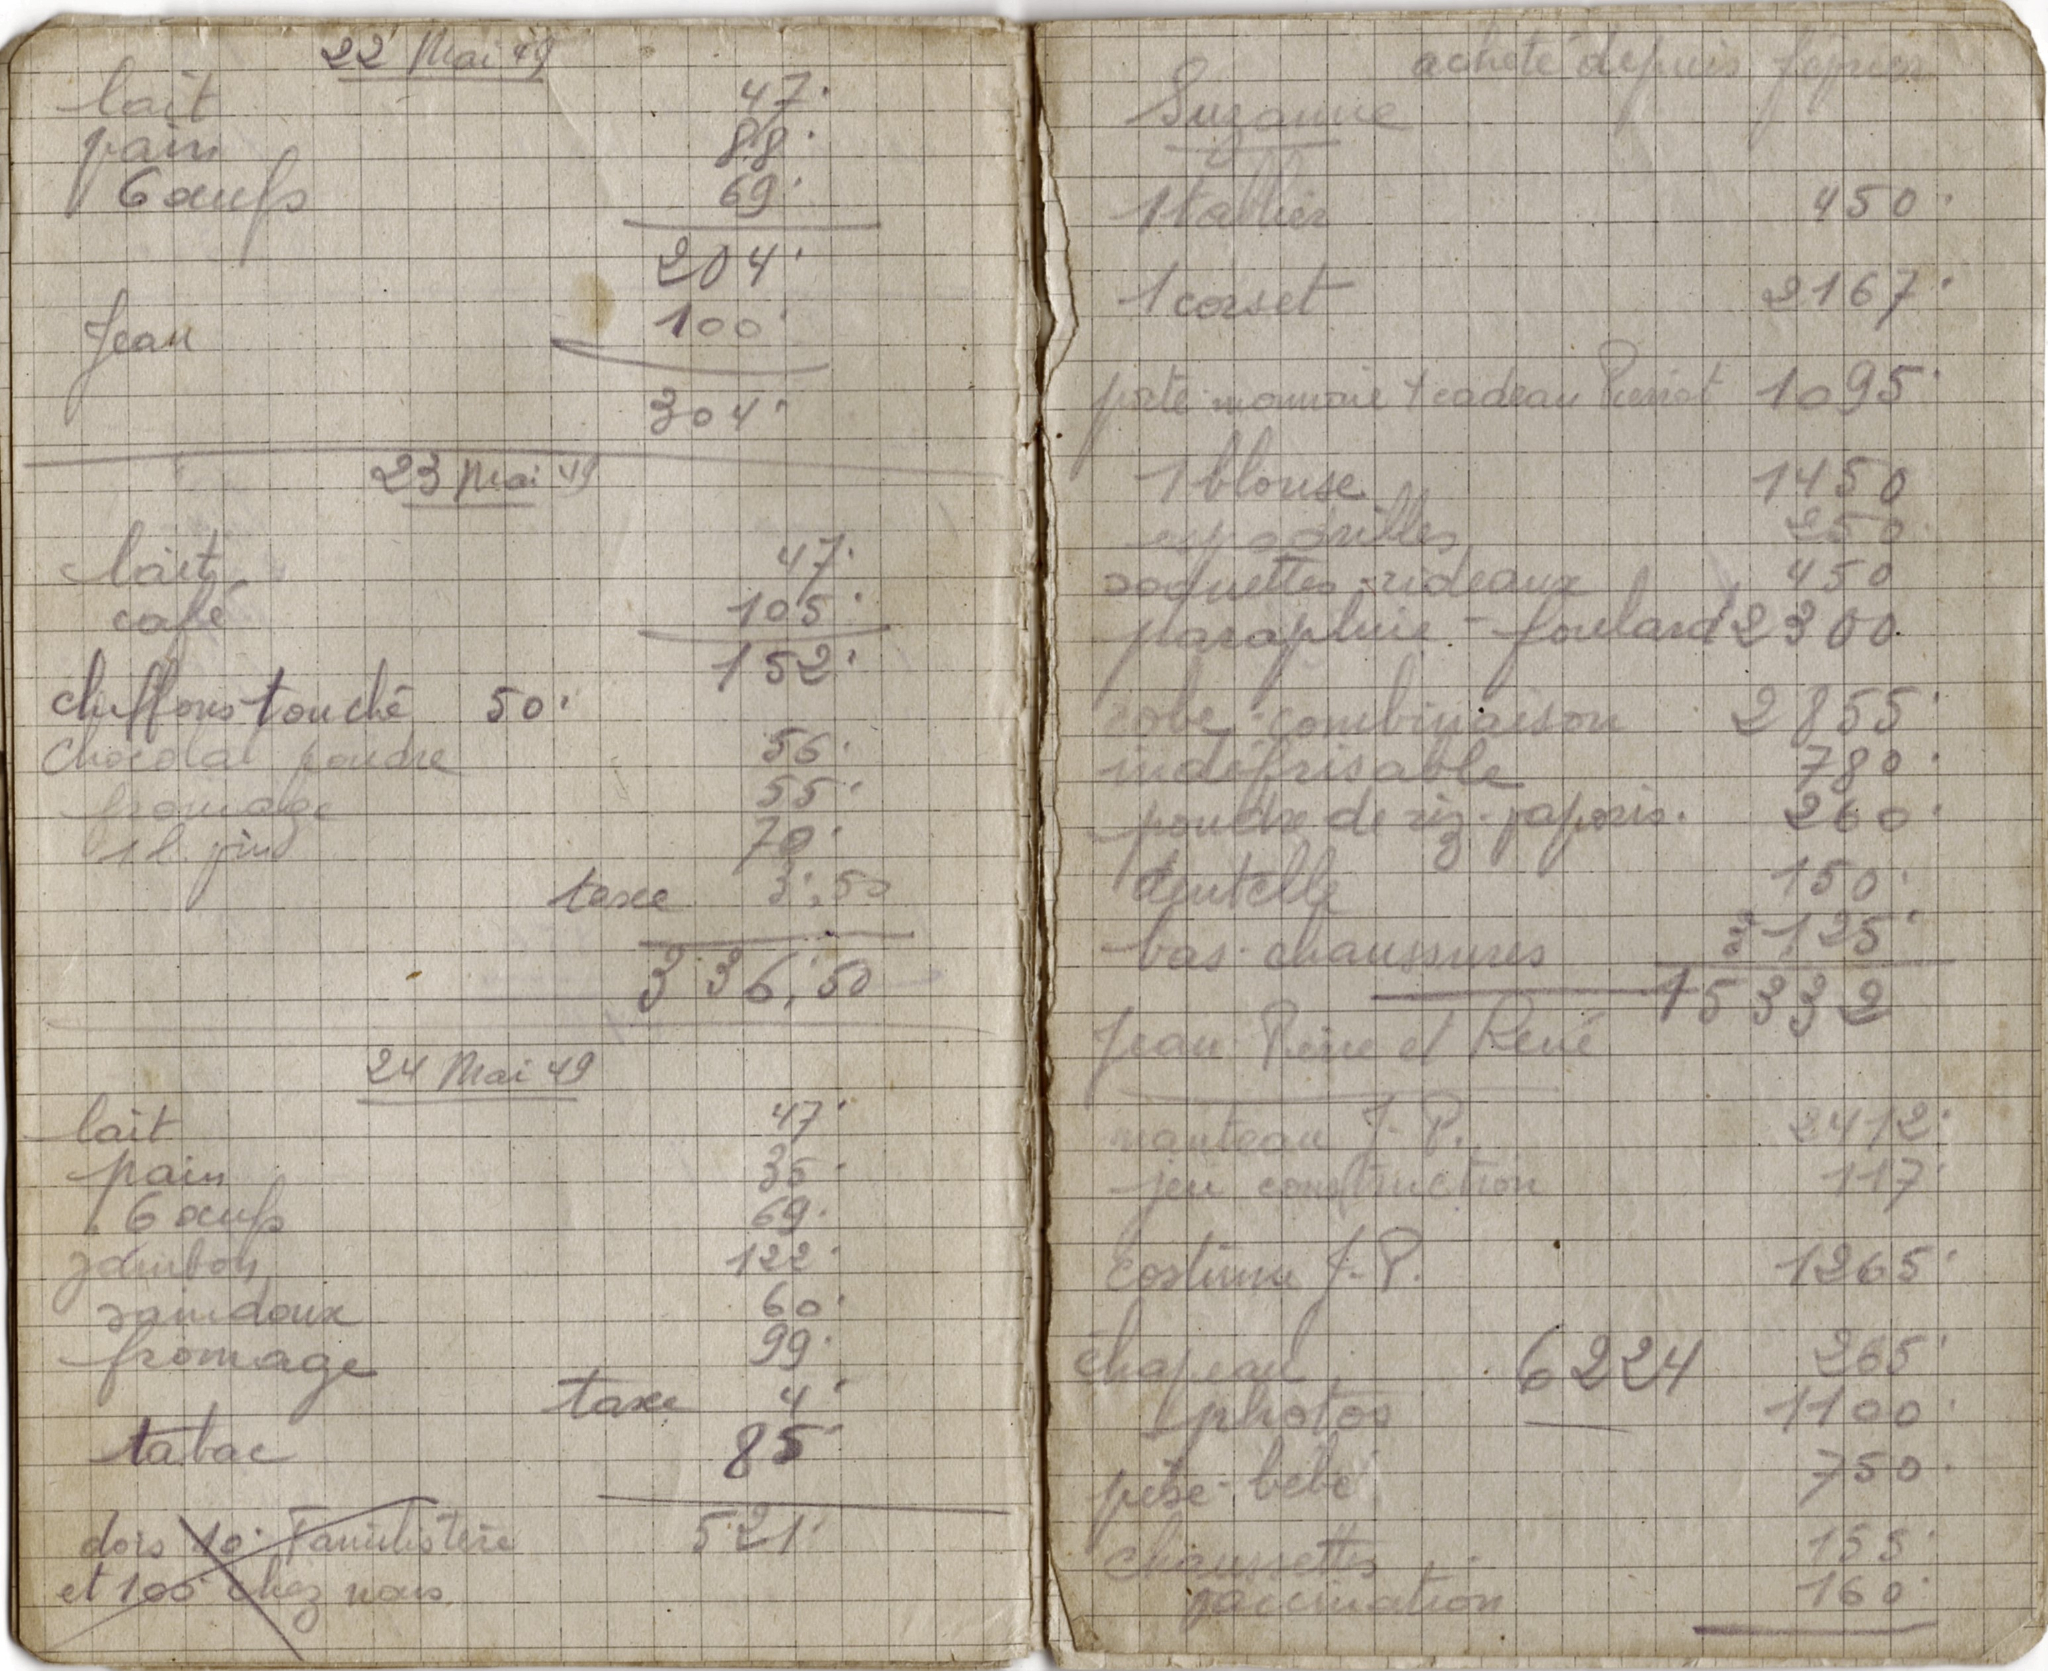 22 Mai 49
lait 47.
pain 88.
6 œufs 69.
204.
Jean 100.
304.
23 Mai 49
lait 47.
café 105.
152.
chiffons touché 50.
chocolat poudre 56.
fromage 55.
1 l. pin 70.
taxe 3.,50
336,50
24 Mai 49
lait 47.
pain 35.
6 œufs 69.
jambon 122.
saindoux 60.
fromage 99.
taxe 4.
tabac 85.
521.
dois 10. Familistère
et 100. chez nous
acheté depuis
Suzanne
1 tablier 450.
1 corset 2167.
porte-monnaie + cadeau Pierrot 1095.
1 blouse 1450
espadrilles 250.
soquettes-rideaux 450
parapluie - foulard 2300
robe-combinaison 2855.
indéfrisable 780.
poudre de riz- 260.
dentelle 150.
bas-chaussures 3125.
15332
Jean Pierre et René
manteau J-P. 2412.
jeu construction 117.
Costume J-P. 1265.
chapeau 6224 265.
photos 1100.
pèse-bébé 750.
chaussettes 155.
vaccination 160.